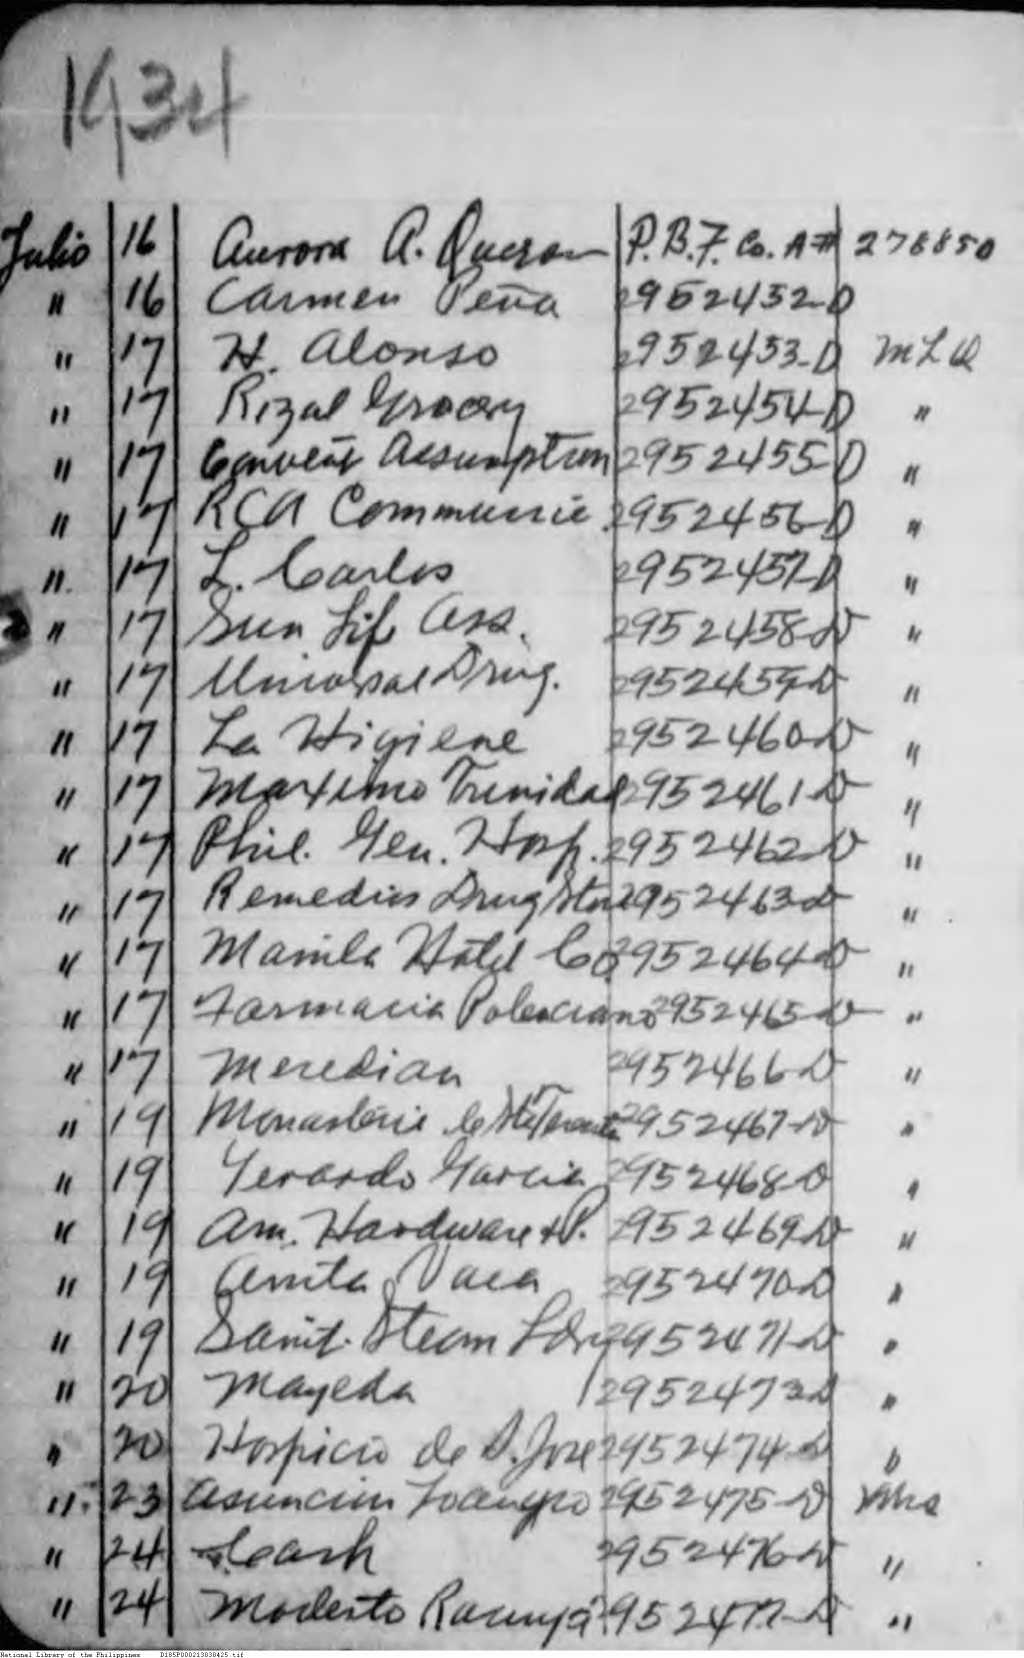 1934
Julio 16 Aurora A. Quezon P.B.F. Co. A# 278850
" 16 Carmen Peña 2952452-D
" 17 H. Alonso 2952453-D MLQ
" 17 Rizal Grocery 2952454-D "
" 17 Convent Assumption 2952455-D "
" 17 RCA Communic. 2952456-D "
". 17 L. Carlos 2952457-D "
" 17 Sun Life Ass. 2952458-D "
" 17 Universal Drug. 2952459-D "
" 17 La Higiene 2952460-D "
" 17 Maximo Trinidad 2952461-D "
" 17 Phil. Gen. Hosp. 2952462-D "
" 17 Remedios Drug Store 2952463-D "
" 17 Manila Hotel Co. 2952464-D "
" 17 Farmacia Policiano 2952465-D "
" 17 Meredian 2952466-D "
" 19 2952467-D "
" 19 Gerardo Garcia 2952468-D "
" 19 Am. Hardware & P. 2952469-D "
" 19 Anita Vaca 2952470-D "
" 19 Sanit. Steam Ldry 2952471-D "
" 20 Mayeda 2952473-D "
" 20 Hospicio de S. Jose 2952474-D "
". 23 Asuncion 2952475-D
" 24 Cash 2952476-D "
" 24 Modesto 2952477-D "
National Library of the Philippines D185P000213838425.tif